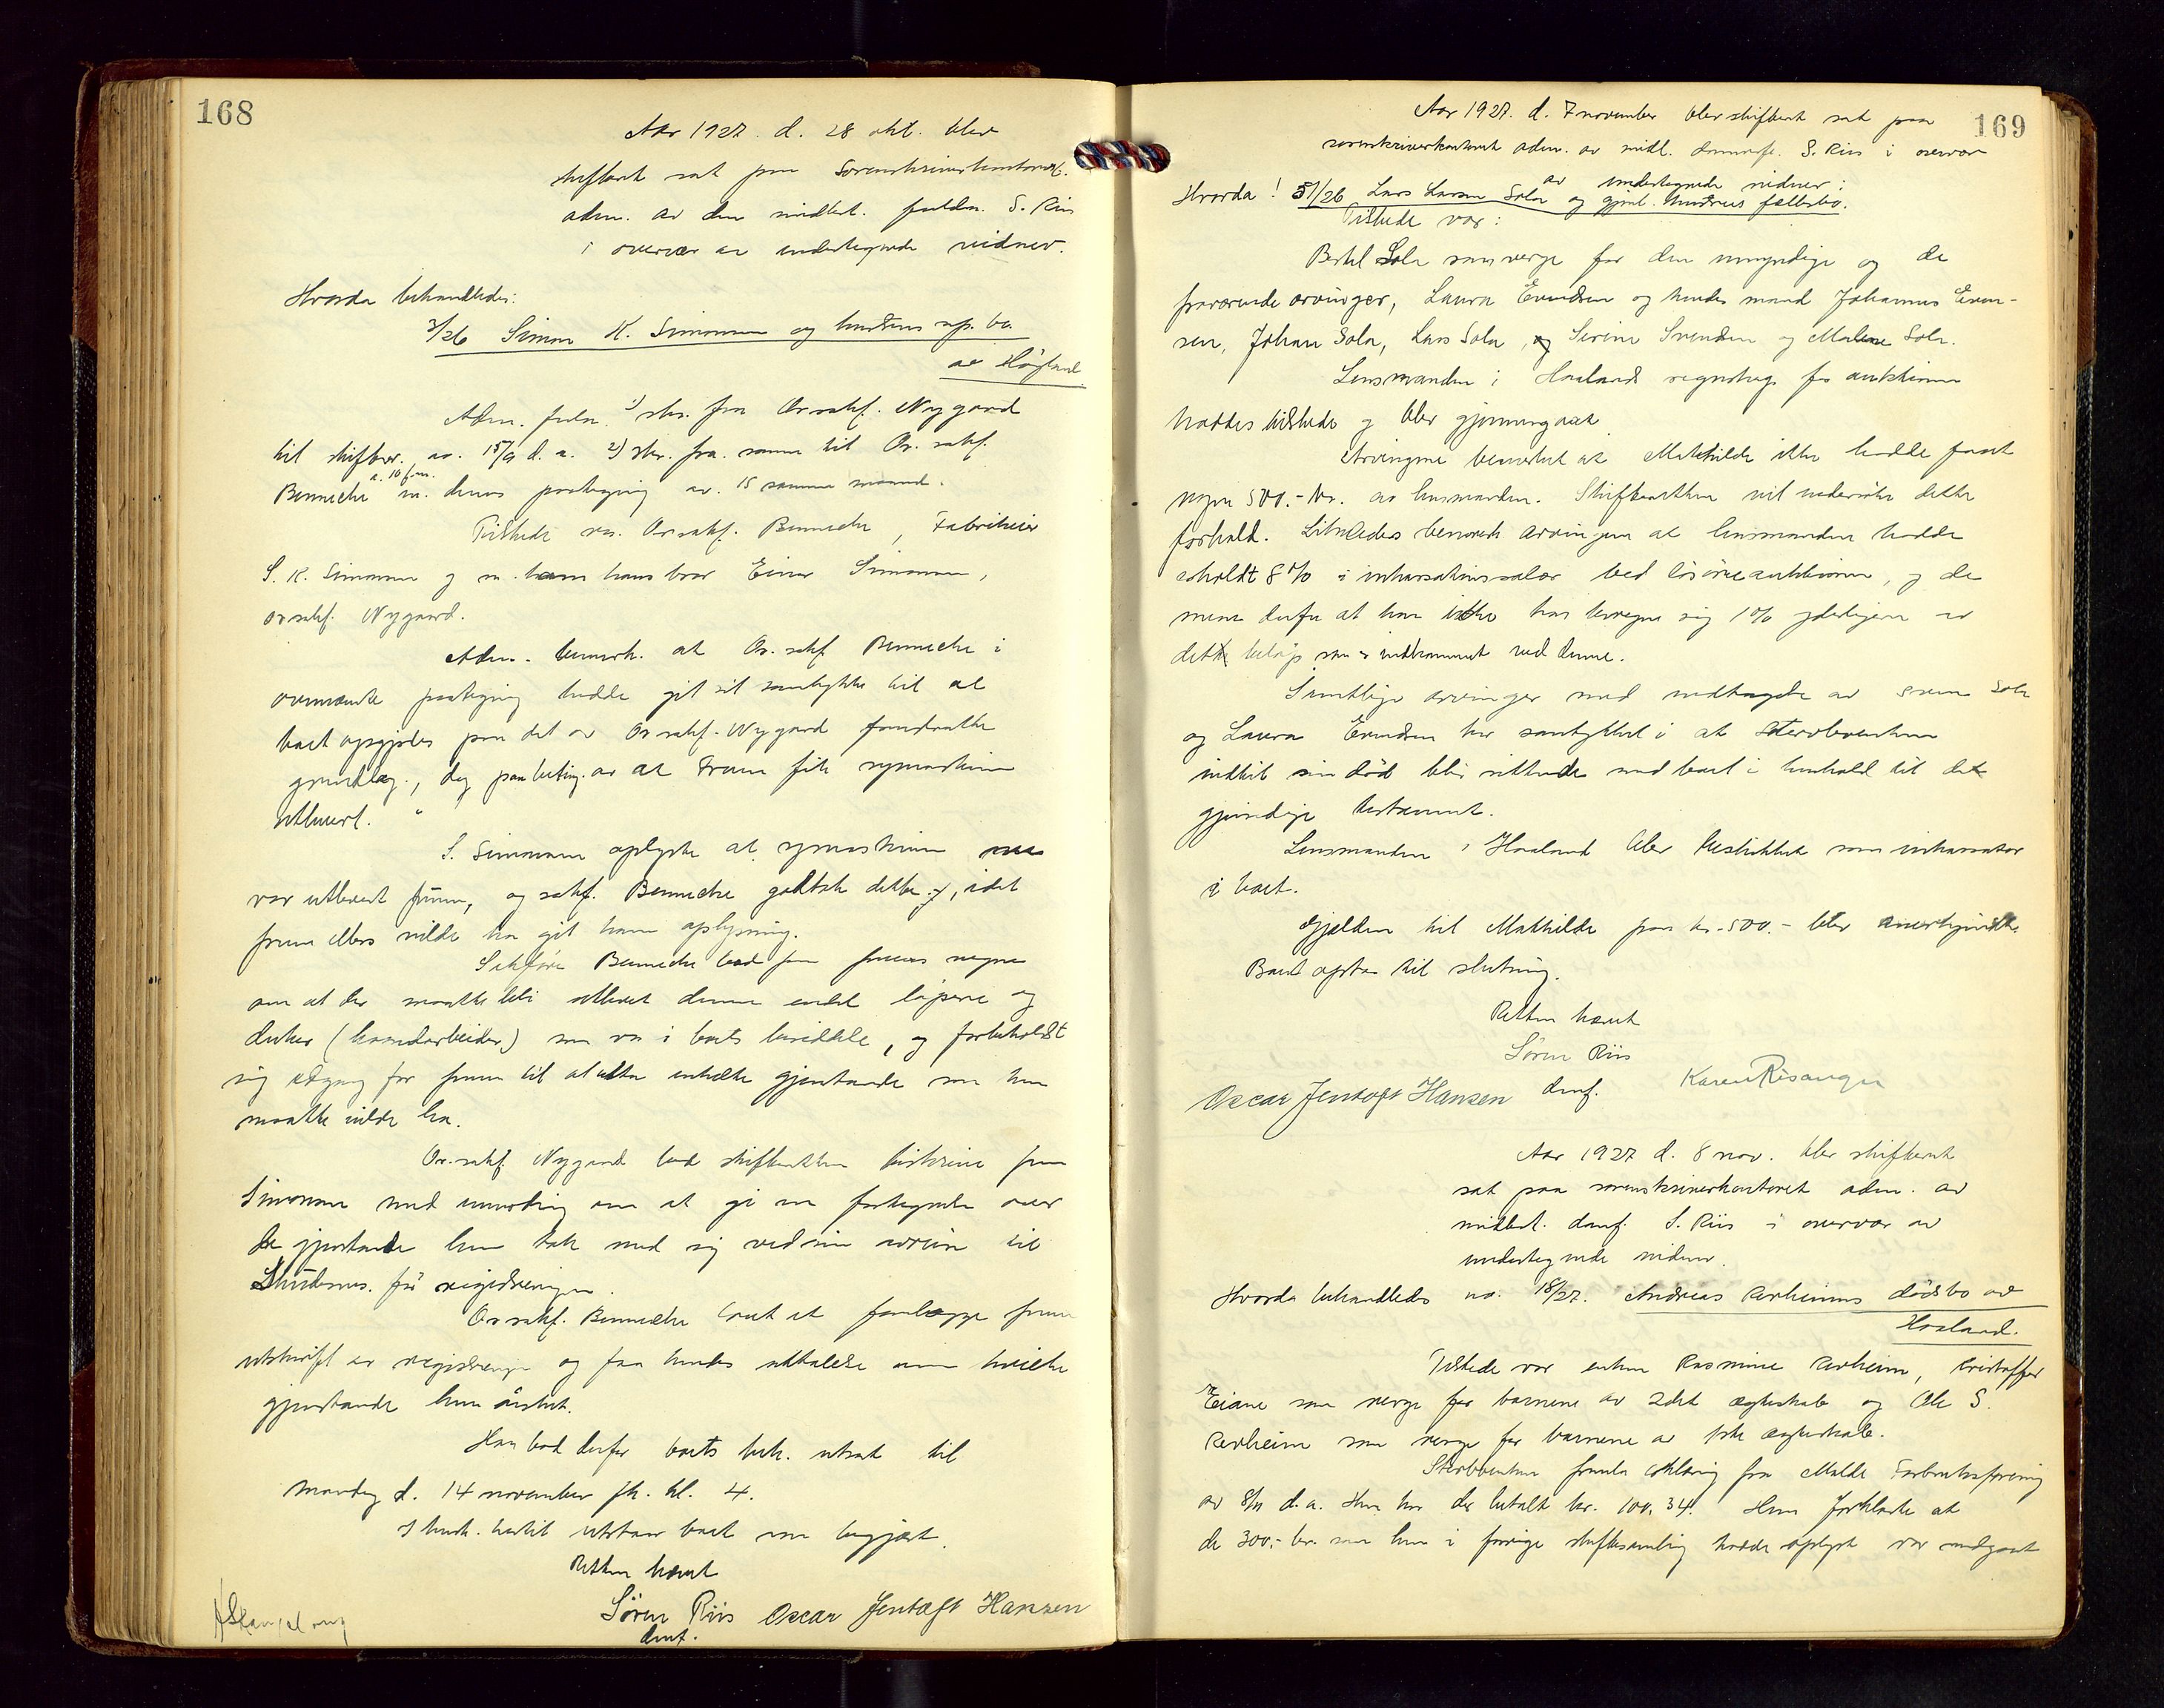 168
Aar 1927. d. 28 okt. blev
skifteret sat paa Sorenskriverkontoret.
adm. av den midlert. fuldm. S. Riis
i overvær av undertegnede vidner.
Hvorda behandledes:
3/26 Simon K. Simonsen og hustrus sep. bo
av Høgland
Adm. freml. 1) skr. fra Or. sakf. Nygaard
til skifter. av 15/9 d. a. 2) skr. fra samme til Or. sakf.
Bennecke m. dennes paategning av 15 samme maaned.
Tilstede var Or. sakf. Bennecke, Fabrikeier
S. K. Simonsen og m. ham hans bror Einar Simonsen,
or sakf. Nygaard.
Adm. bemerk. at Or. sakf. Bennecke i
ovennævnte paategning hadde git sit samtykke til at
boet opgjøres paa det av Or sakf. Nygaard foreslaatte
grundlag., dog paa beting. av at Fruen fik symaskinen
utlevert.
S. Simonsen oplyste at symaskinen
var utlevert fruen, og sakf. Bennecke godtok dette, idet
fruen ellers vilde ha git ham oplysning.
Sakfører Bennecke bad paa fruens vegne
om at der maatte bli utlevert denne endel løpere og
duker (haandarbeider) som var i boets besiddelse, og forbeholdt
sig adgang for fruen til at utta enkelte gjenstande som hun
maatte vilde ha.
Or. sakf. Nygaard bad skifteretten tilskrive fru
Simonsen med anmodning om at gi en fortegnelse over
de gjenstande hun tok med sig ved sin avreise til
Skudesnes. før registreringen.
Or sakf. Bennecke lovet at forelægge fruen
utskrift av registreringen og faa hendes uttalelse om hvilke
gjenstande hun ønsket.
Han bad derfor boets beh. utsat til
mandag d. 14 november fk. kl. 4.
I henh. hertil utstaar boet som begjært.
Retten hævet
Søren Riis Oscar Jentoft Hansen
dmf.
169
Aar 1927. d. 7 november blev skifteret sat paa
sorenskriverkontoret adm. av midl. domsfe. S. Riis i overvær
av undertegnede vidner:
Hvorda! 51/26 Lars Larsen Sola og gjenl. hustrus fællesbo.
Tilstede var:
Bertel Sola som verge for den umyndige og de
fraværende arvinger, Laura Evendsen og hendes mand Johannes Even-
sen, Johan Sola, Lars Sola, Serine Svendsen og Malene Sola.
Lensmanden i Haalands regnskap for auktionen
haddes tilstede og blev gjennemgaat
Arvingene bemerket at Mathilde ikke hadde faat
nogen 500.- kr. av lensmanden. Skifteretten vil undersøke dette
forhold. Likeledes bemerk. arvingene at lensmanden hadde
erholdt 8% i inkassationssalær ved løsøreauktionen, og de
mener derfor at han ikke kan beregne sig 1% yderligere av
det beløp som er indkommet ved denne.
Samtlige arvinger med undtagelse av Soren Sola
og Laura Evendsen har samtykket i at Stervboenken
indtil sin død blir sittende med boet i henhold til det
gjensidige testament.
Lensmanden i Haaland blev beskikket som inkassator
i boet.
Gjælden til Mathilde paa kr. 500.- blev anerkjendt.
Boet optas til slutning.
Retten hævet
Søren Riis
Oscar Jentoft Hansen dmf. Karen Risanger
Aar 1927 d. 8 nov. blev skifteret
sat paa sorenskriverkontoret adm. av
midlert. domf. S. Riis i overvær av
undertegnede vidner.
Hvorda behandledes no. 18/27. Andreas Rerheims dødsbo av
Haaland.
Tilstede var enken Rasmine Rerheim, Kristoffer
Eiane som verge for barnene av 2det ægteskab og Ole S.
Rerheim som verge for barnene av 1ste ægteskab.
Stervboenken fremla erklæring fra Malde Forbruksforening
av 8/11 d. a. Hun har der betalt kr. 100,34. Hun forklarte at
de 300,- kr. som hun i forrige skiftesamling hadde oplyst var medgaat